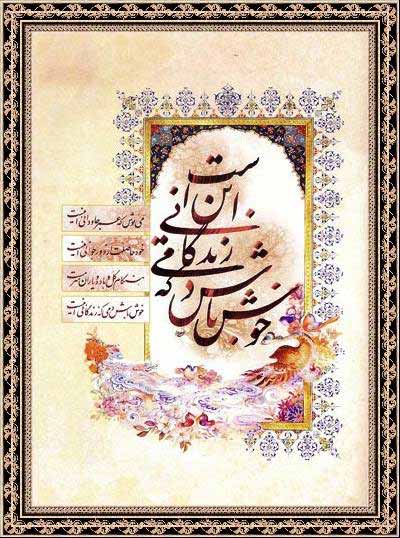 خوش باش دمی که زندگانی این است
می نوش که عمر جاودانی اینست
خود حاصلت از دور جوانی اینست
هنگام گل و باده و یاران سرمست
خوش باش دمی که زندگانی اینست